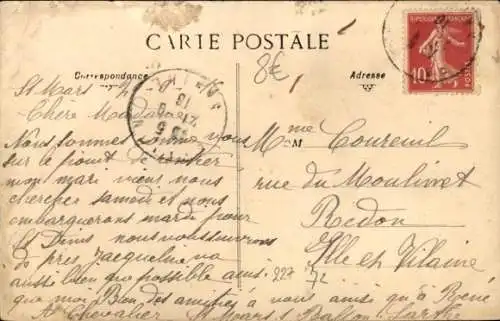 CARTE POSTALE
8€
Correspondance
Adresse
REPUBLIQUE FRANÇAISE
10
St Mars
Chère Madame
Nous sommes comme vous
sur le point de rentrer
mon mari vient nous
chercher samedi et nous
embarquerons mardi pour
St Denis nous vous suivrons
de près Jacqueline va
aussi bien que possible ainsi
que moi Bien des amitiés à vous ainsi qu'à René
A Chevalier St Mars s Ballon Sarthe
Mme Coureuil
M
rue du Moulinet
Redon
Ille et Vilaine
227 72